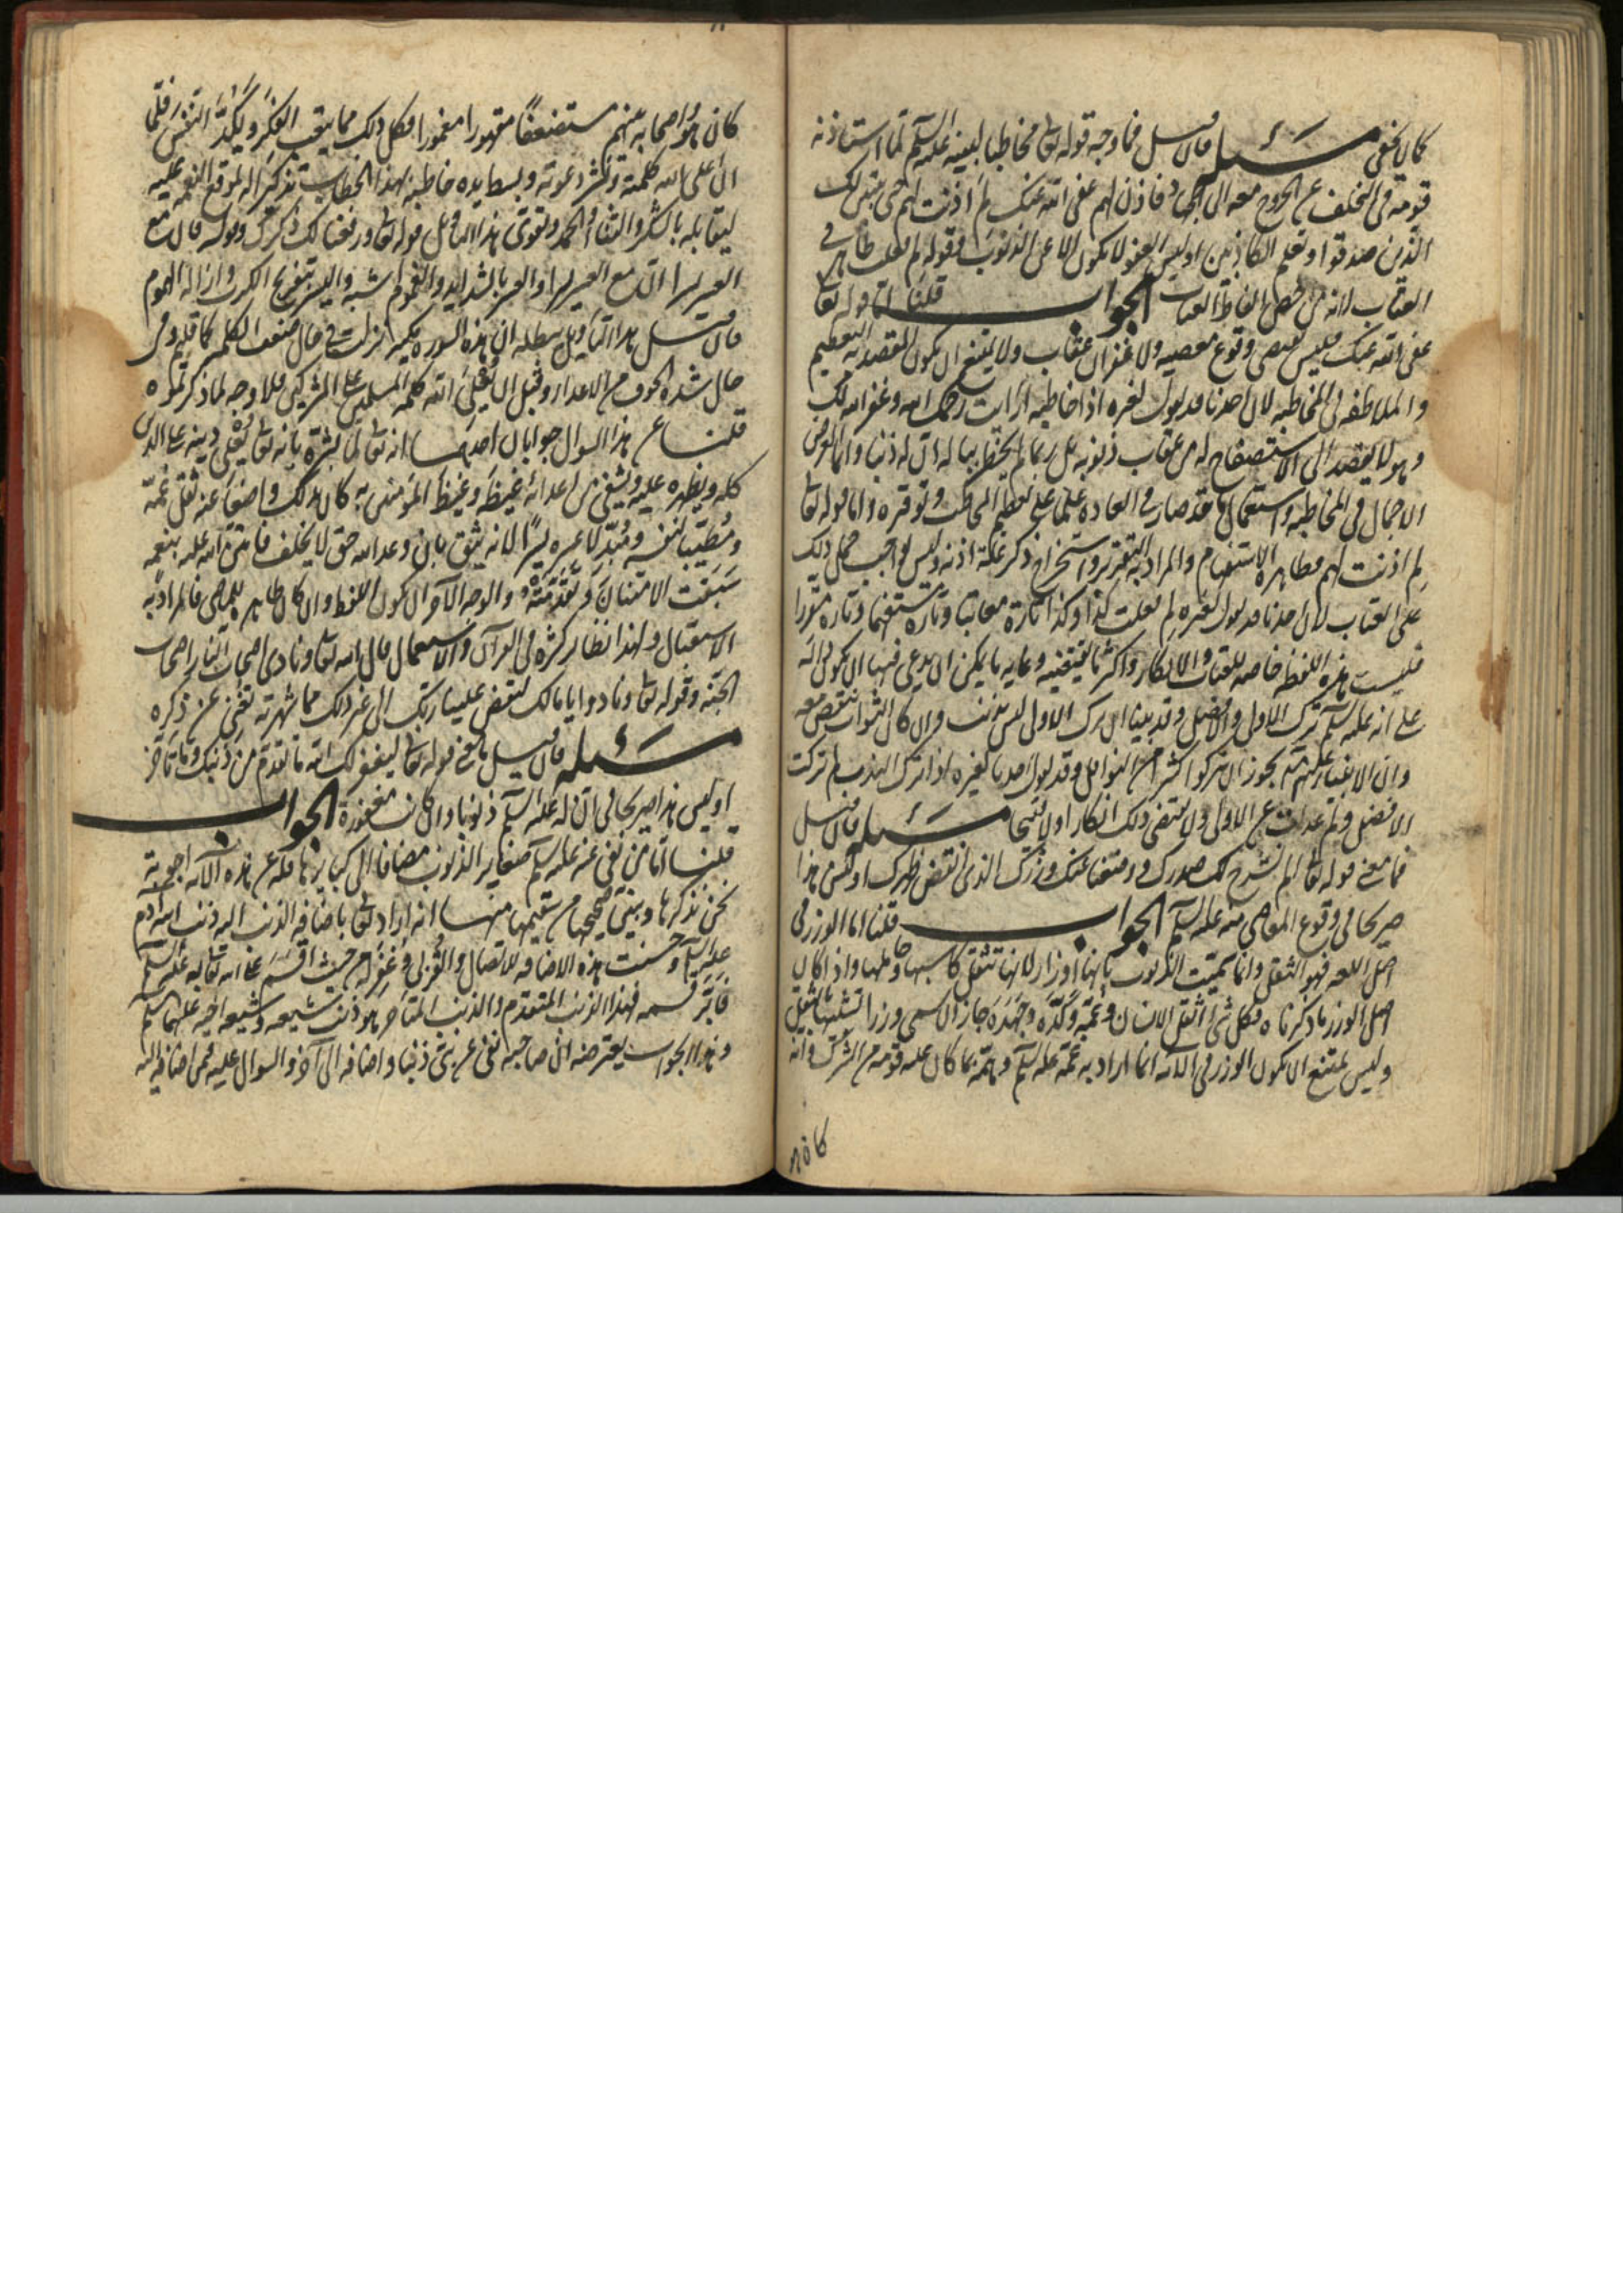 كما لا يخفى مسئله فان قيل فما وجه قوله تعالى مخاطبا لنبيه عليه السلم لما استاذنه
قومه فى التخلف عن الخروج معه الى الجهاد فاذن لهم عفى الله عنك لم اذنت لهم حتى يتبين لك
الذين صدقوا وتعلم الكاذبين اوليس العفو لا يكون الا عن الذنوب وقوله لم فعلت ظاهر فى
العتاب لانه من اخص الفاظ العتاب الجواب قلنا اما قوله تعالى
عفى الله عنك فليس يقتضى وقوع معصيه ولا غفران عقاب ولا يمتنع ان يكون المقصد به التعظيم
والملاطفه فى المخاطبه لان احدنا قد يقول لغيره اذا خاطبه ارايت رحمك الله وغفر الله لك
وهو لا يقصد الى الاستصفاح له من عقاب ذنوبه بل ربما لم يخطر بباله ان له ذنبا وانما الغرض
الاجمال فى المخاطبه واستعمال ما قد صار فى العاده علما على تعظيم المخاطب وتوقيره واما قوله تعالى
لم اذنت لهم فظاهره الاستفهام والمراد به التقرير واستخراج ذكر علة اذنه وليس بواجب حمل ذلك
على العتاب لان احدنا قد يقول لغيره لم فعلت كذا وكذا تارة معاتبا وتارة مستفهما وتاره مقررا
فليست هذه اللفظه خاصه للعتاب والانكار واكثر ما يقتضيه وغايه ما يمكن ان يدعى فيها ان يكون دالة
على انه عليه السلم ترك الاولى والافضل وقد بينا ان ترك الاولى ليس بذنب وان كان الثواب ينقص معه
وان الانبياء عليهم السلم يجوز ان يتركوا كثيرا من النوافل وقد يقول احدنا لغيره اذا ترك الندب لم تركت
الافضل ولم عدلت عن الاولى ولا يقتضى ذلك انكارا ولا قبيحا مسئله فان قيل
فما معنى قوله تعالى الم نشرح لك صدرك ووضعنا عنك وزرك الذى انقض ظهرك اوليس هذا
صريحا فى وقوع المعاصى منه عليه السلم الجواب قلنا اما الوزر فى
اصل اللغه فهو الثقل وانما سميت الذنوب بانها اوزار لانها تثقل كاسبها وحاملها واذا كان
اصل الوزر ما ذكرناه فكل شئ اثقل الانسان وغمه وكده وجهده جاز ان يسمى وزرا تشبيها بالثقيل
وليس يمتنع ان يكون الوزر فى الآيه انما اراد به غمه عليه السلم وهمه بما كان عليه قومه من الشرك وانه
كان هو واصحابه بينهم مستضعفا مقهورا مغمورا فكل ذلك مما يتعب الفكر ويكد النفس فلما
ان اعلى الله كلمته ونشر دعوته وبسط يده خاطبه بهذا الخطاب تذكيرا له لموقع النعمه عليه
ليقابله بالشكر والثناء والحمد ويقوى هذا التاويل قوله تعالى ورفعنا لك ذكرك وقوله فان مع
العسر يسرا ان مع العسر يسرا والعسر بالشدايد والغموم اشبه واليسر بتفريج الكرب وازالة الهموم
فان قيل هذا التاويل يبطله ان هذه السوره مكيه نزلت فى حال ضعف الكلمه كما قلتم وفى
حال شدة الخوف من الاعداء وقبل ان يعلى الله كلمه المسلمين على المشركين فلا وجه لما ذكرتموه
قلنا عن هذا السوال جوابان احدهما انه تعالى لما بشره بانه تعالى يعلى دينه على الدين
كله ويظهره عليه ويشفى من اعدائه غيظه وغيظ المؤمنين به كان بذلك واضعا عنه ثقل غمه
ومطيبا لنفسه ومبدلا عسره يسرا لانه يثق بان وعد الله حق لا يخلف فامتن الله عليه بنعمه
سبقت الامتنان وتقدمته والوجه الآخر ان يكون اللفظ وان كان ظاهره للماضى فالمراد به
الاستقبال ولهذا نظائر كثيره فى القرآن والاستعمال قال الله تعالى ونادى اصحاب النار اصحاب
الجنه وقوله تعالى ونادوا يا مالك ليقض علينا ربك الى غير ذلك مما شهرته تغنى عن ذكره
مسئله فان قيل ما معنى قوله تعالى ليغفر لك الله ما تقدم من ذنبك وما تاخر
اوليس هذا صريحا فى ان له عليه السلم ذنوبا وان كانت مغفورة الجواب
قلنا اما من نفى عنه عليه السلم صغاير الذنوب مضافا الى كبايرها فله عن هذه الآيه اجوبة
نحن نذكرها ونبين صحيحها من سقيمها منها انه اراد تعالى باضافه الذنب اليه ذنب ابيه آدم
عليه السلم وحسنت هذه الاضافه للاتصال والقربى وغفر له من حيث اقسم على الله تعالى به عليه السلم
فابر قسمه فهذا الذنب المتقدم والذنب المتاخر هو ذنب شيعه وشيعه اخيه عليهما السلم
وهذا الجواب يعترضه ان صاحبه نفى عن نبى ذنبا واضافه الى آخر والسوال عليه فيمن اضافه اليه